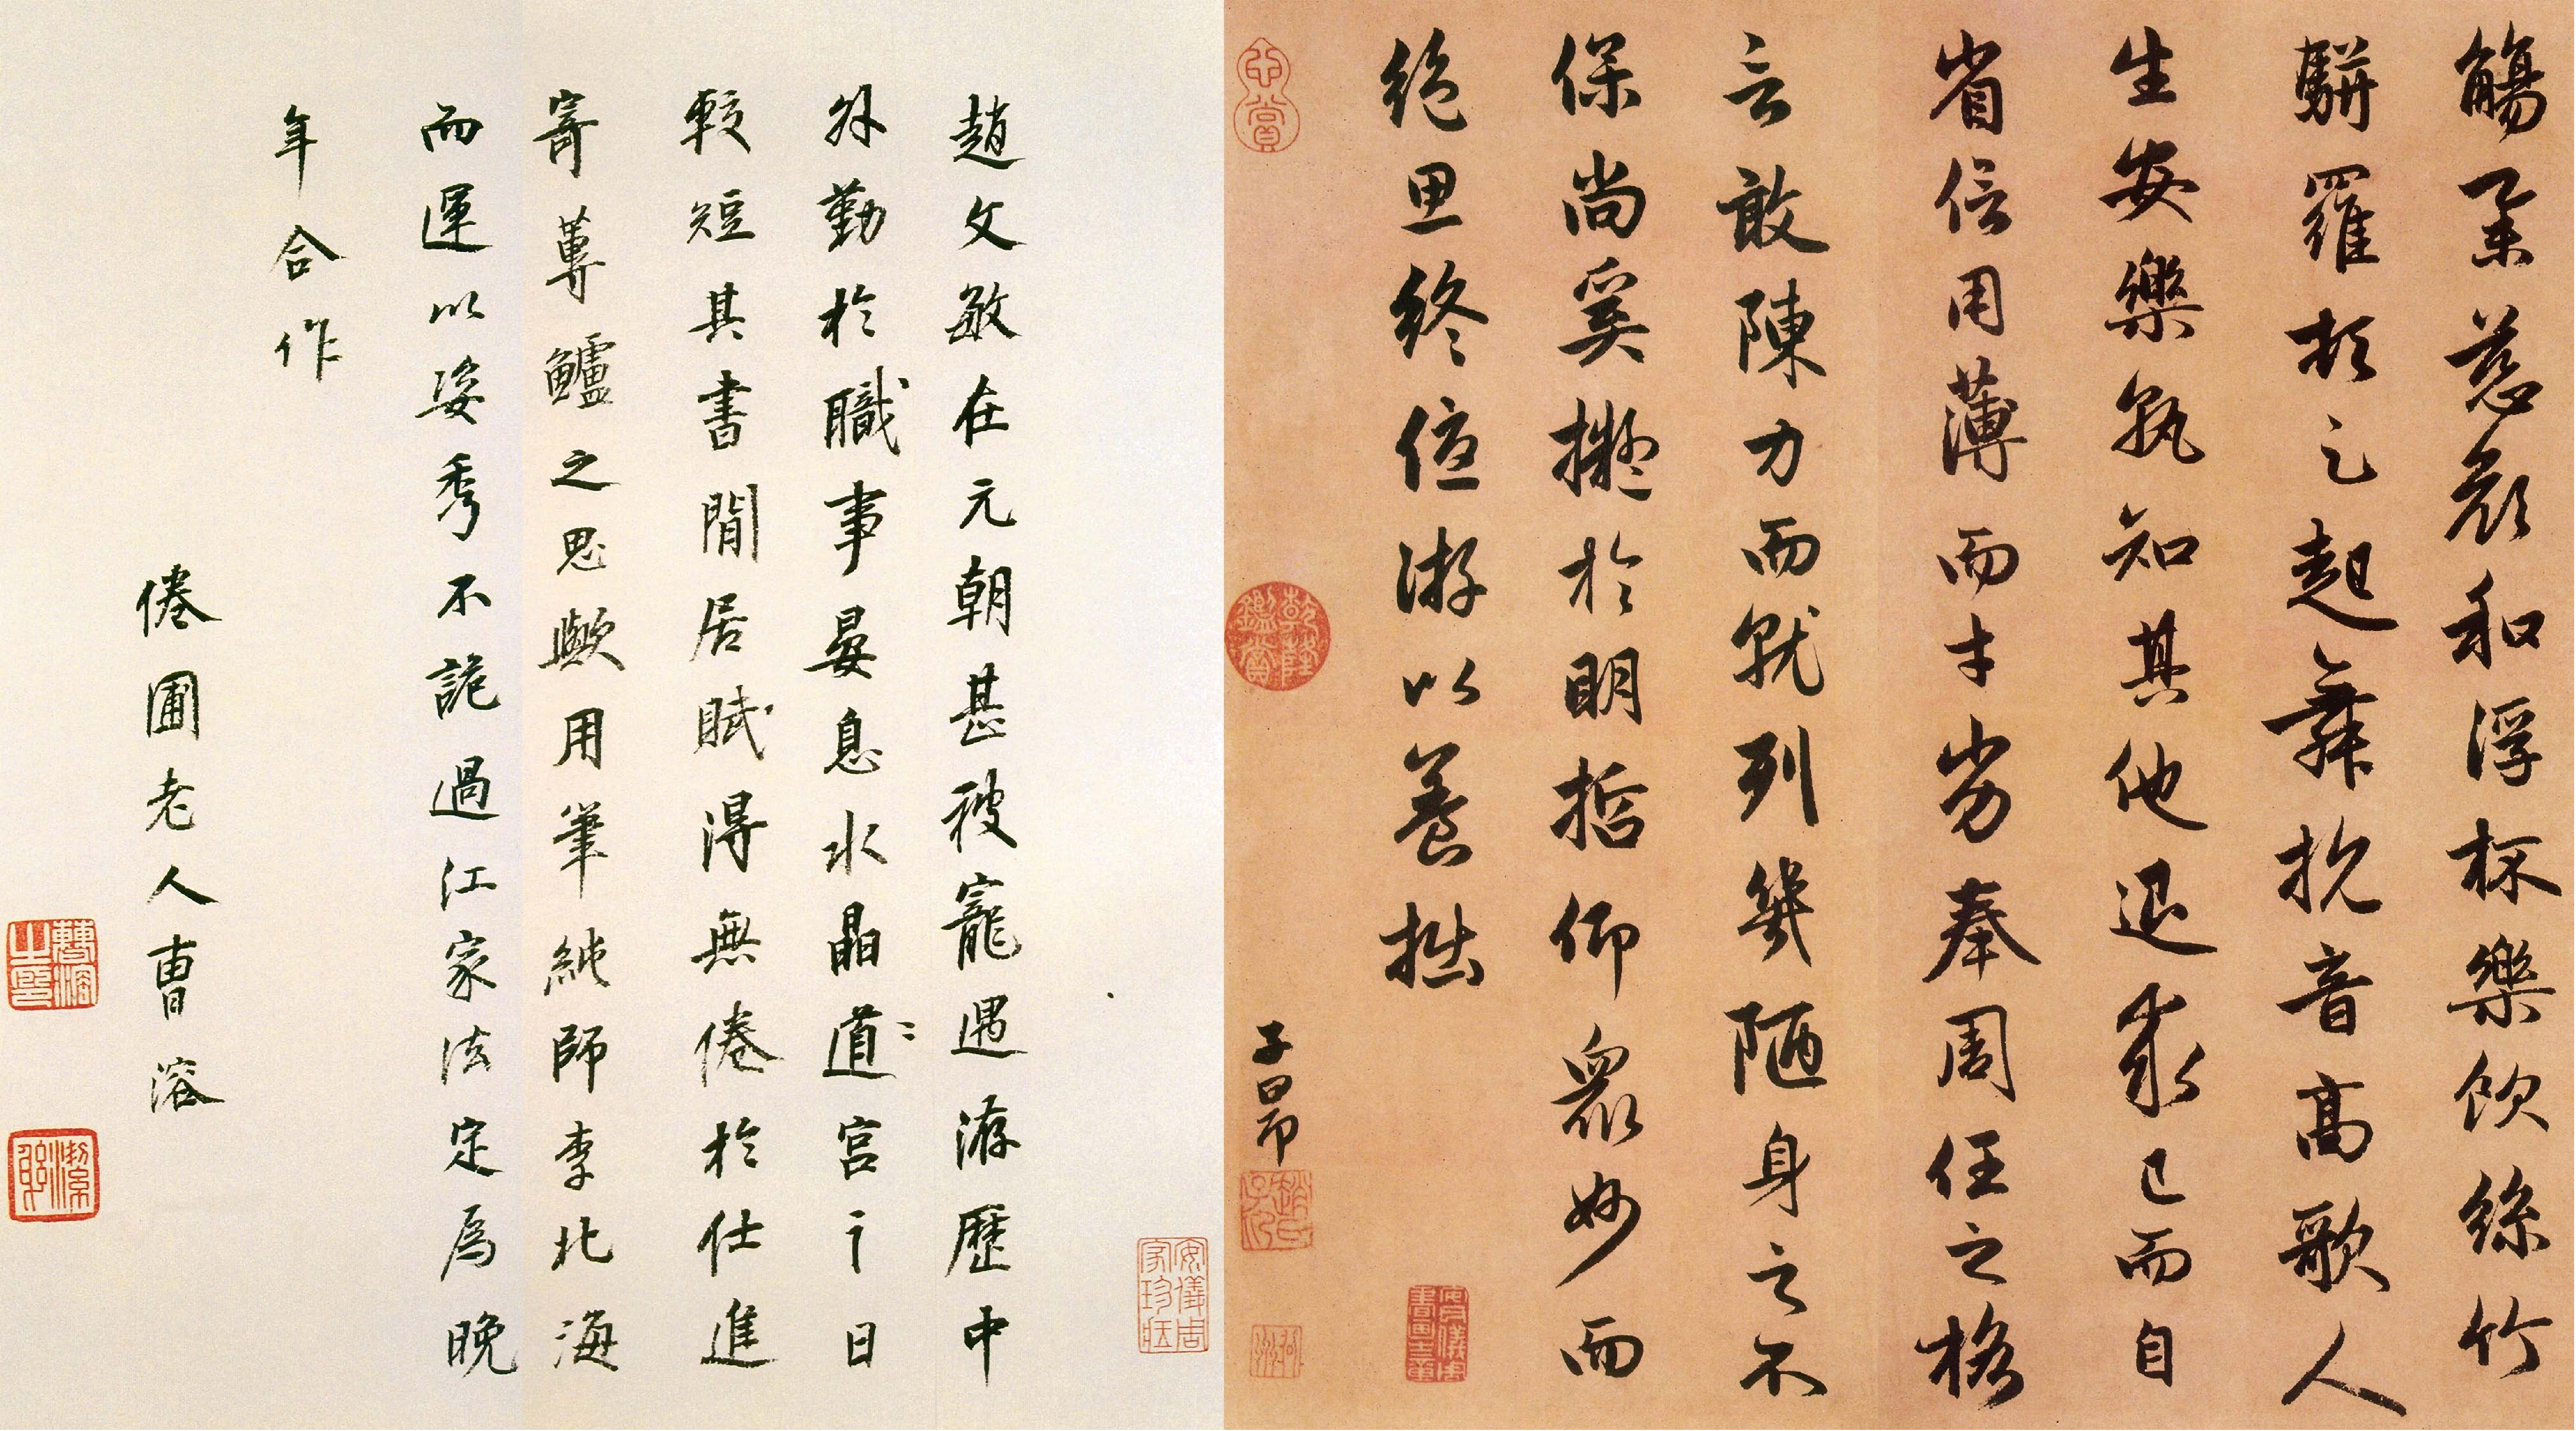 觴舉慈顏和浮杯樂飲絲竹
駢羅頓足起舞抗音高歌人
生安樂孰知其他退求己而自
省信用薄而才劣奉周任之格
言敢陳力而就列幾陋身之不
保尚奚擬於明哲仰衆妙而
絕思終優游以養拙
子昂
趙文敏在元朝甚被寵遇游歷中
外勤於職事晏息水晶道宮之日
較短其書閒居賦得無倦於仕進
寄蓴鱸之思歟用筆純師李北海
而運以姿秀不詭過江家法定爲晚
年合作
倦圃老人曹溶
安儀周家珍藏
乾隆鑑賞
曹溶之印
潔躬